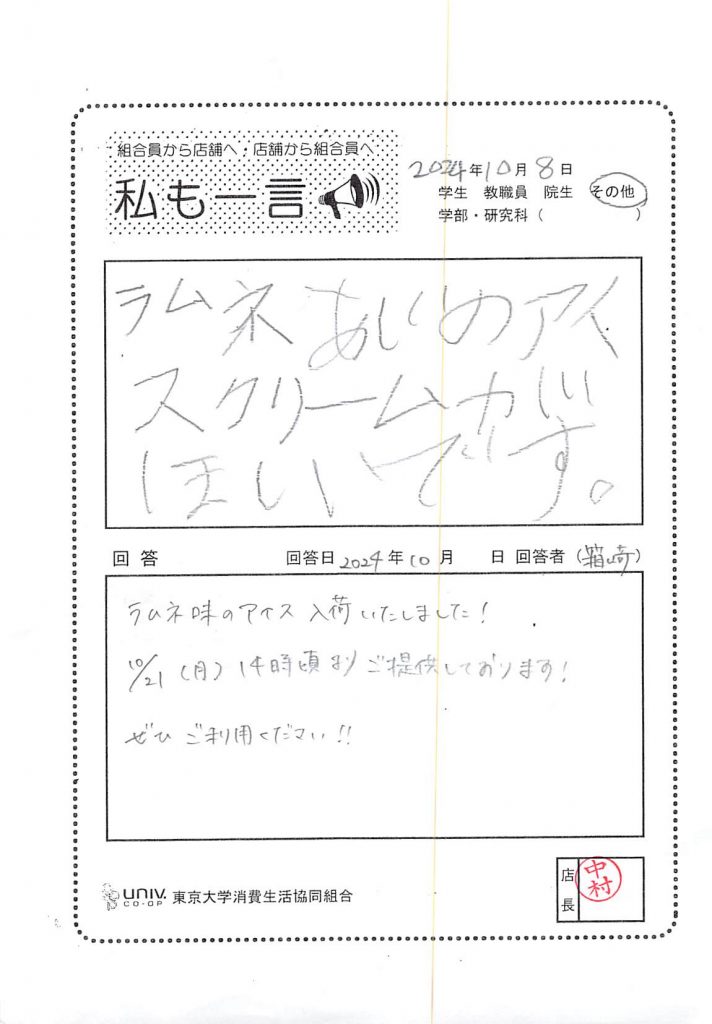 組合員から店舗へ・店舗から組合員へ
私も一言
2024年10月8日
学生 教職員 院生 その他
学部・研究科( )
ラムネあじのアイ
スクリームが
ほしいです。
回答 回答日2024年10月 日 回答者(箱崎)
ラムネ味のアイス 入荷いたしました!
10/21(月)14時頃よりご提供しております!
ぜひ ご利用ください!!
UNIV.
CO-OP
東京大学消費生活協同組合
店長
中村